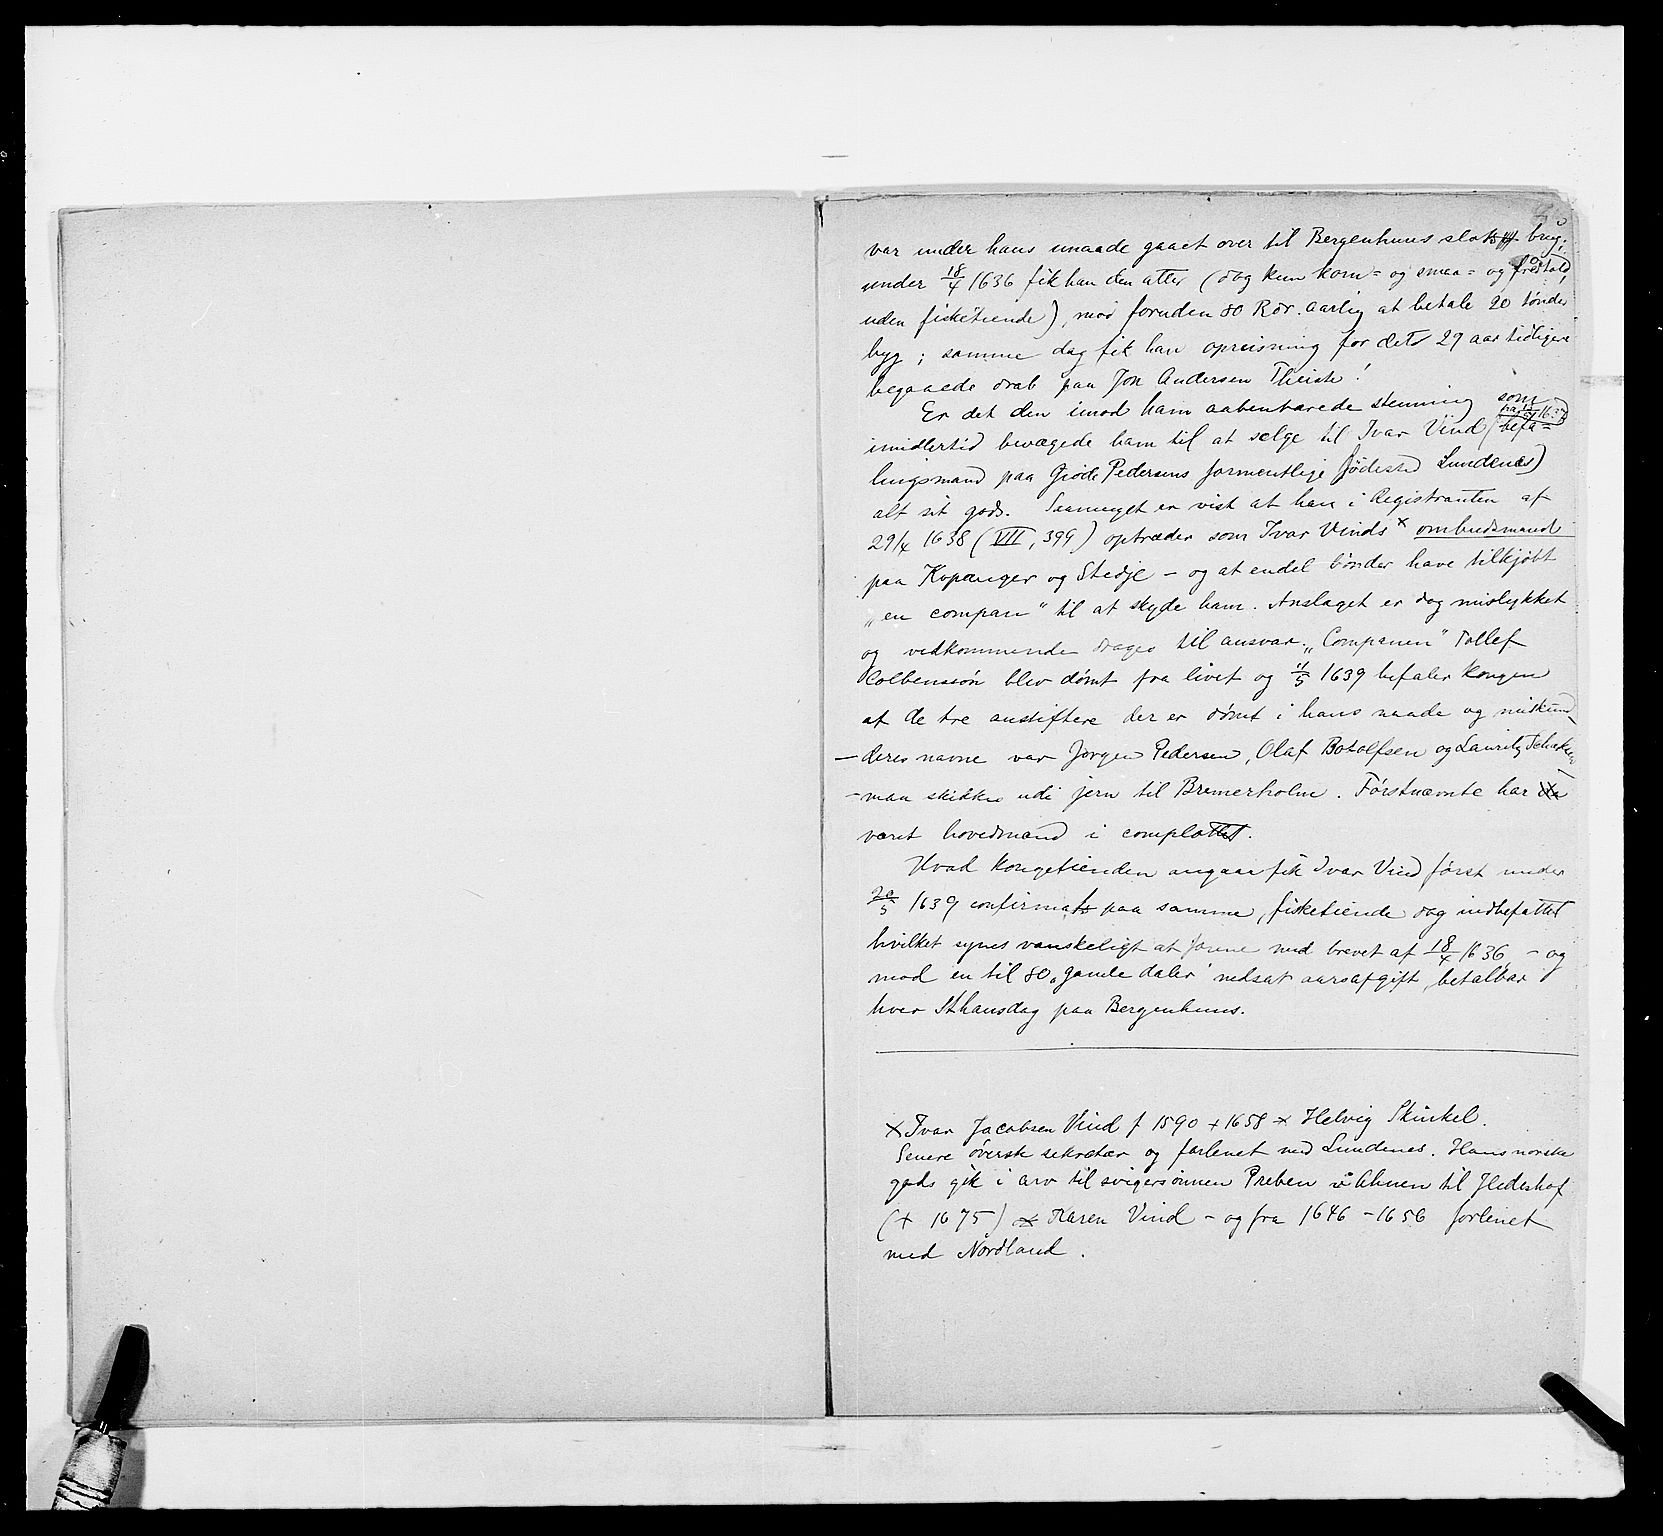 var under hans unaade gaaet over til Bergenhuus slots brug;
under 18/4 1636 fik han den atter (dog kun korn= og smaa= og
uden fisketiende), mod foruden 80 Rdr. aarlig at betale 20 tønder
byg; samme dag fik han opreisning for det 29 aar tidligere
begaaede drab paa Jon Andersen Theiste!
Er det den imod ham aabenbarede stemning som
imidlertid bevægede ham til at sælge til Ivar Vind (befa=
lingsmand paa Giøde Pedersens formentlige fødested Lundenes)
alt sit gods. Saameget er vist at han i Registranten af
29/4 1638 (VII, 399) optræder som Ivar Vinds × ombudsmand
paa Kopanger og Stedje – og at endel bønder have tilkjøbt
„en compan“ til at skyde ham. Anslaget er dog mislykket
og vedkommende drages til ansvar. „Companen“ Tollef
Colbenssøn blev dømt fra livet og 11/5 1639 befaler Kongen
at de tre anstiftere der er dømt i hans naade og miskund
– deres navne var Jørgen Pedersen, Olaf Botolfsen og Lauritz
– maa skikkes udi jern til Bremerholm. Førstnævnte har
været hovedmand i complottet.
Hvad Kongetienden angaar fik Ivar Vind først under
20/5 1639 confirmats paa samme, fisketiende dog indbefattet
hvilket synes vanskeligt at forene med brevet af 18/4 1636, – og
mod en til 80 „gamle daler“ nedsat aarsafgift, betalbar
hver St hansdag paa Bergenhuus.
× Ivar Jacobsen Vind f 1590 + 1658 × Helvig Skinkel.
Senere øverste sekretær og forlenet med Lundenes. Hans norske
gods gik i arv til svigersønnen Preben v Ahnen til
(+ 1675) × Karen Vind – og fra 1646 – 1656 forlenet
med Nordland.